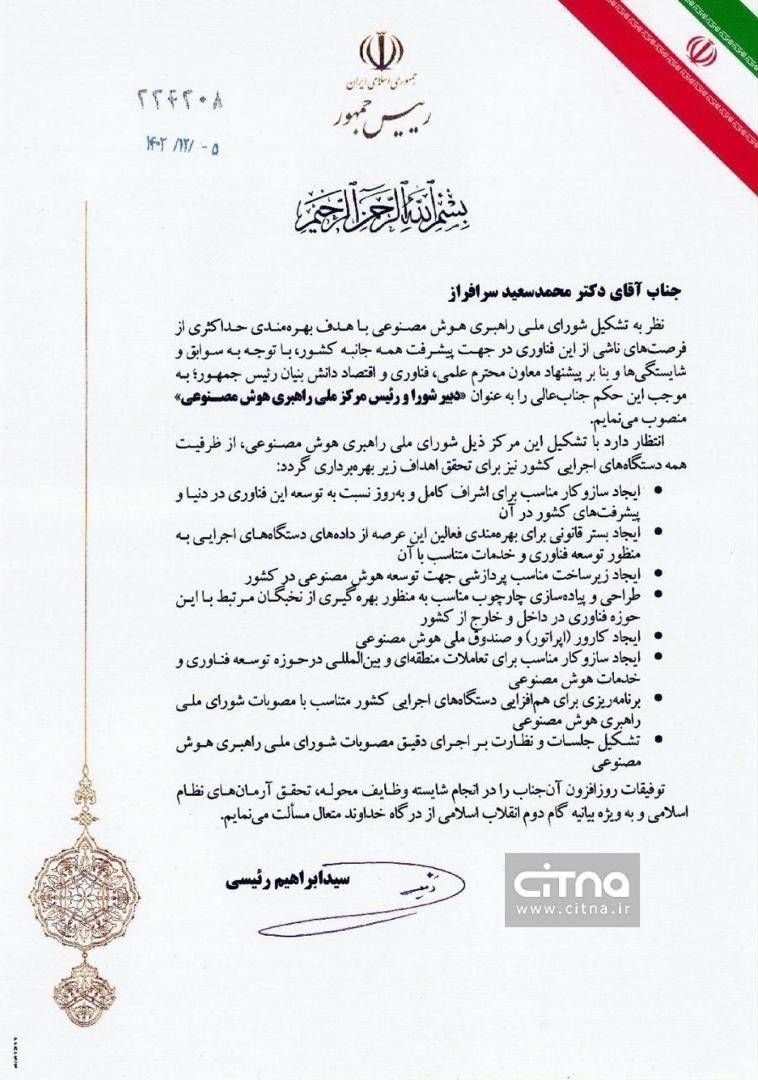 جمهوری اسلامی ایران
رییس جمهور
۲۲۴۲۰۸
۱۴۰۲/۱۲/۰۵
بسم الله الرحمن الرحیم
جناب آقای دکتر محمدسعید سرافراز
نظر به تشکیل شورای ملی راهبری هوش مصنوعی با هدف بهره‌مندی حداکثری از
فرصت‌های ناشی از این فناوری در جهت پیشرفت همه جانبه کشور، با توجه به سوابق و
شایستگی‌ها و بنا بر پیشنهاد معاون محترم علمی، فناوری و اقتصاد دانش بنیان رئیس جمهور؛ به
موجب این حکم جناب‌عالی را به عنوان «دبیر شورا و رئیس مرکز ملی راهبری هوش مصنوعی»
منصوب می‌نمایم.
انتظار دارد با تشکیل این مرکز ذیل شورای ملی راهبری هوش مصنوعی، از ظرفیت
همه دستگاه‌های اجرایی کشور نیز برای تحقق اهداف زیر بهره‌برداری گردد:
• ایجاد سازوکار مناسب برای اشراف کامل و به‌روز نسبت به توسعه این فناوری در دنیا و
پیشرفت‌های کشور در آن
• ایجاد بستر قانونی برای بهره‌مندی فعالین این عرصه از داده‌های دستگاه‌های اجرایی به
منظور توسعه فناوری و خدمات متناسب با آن
• ایجاد زیرساخت مناسب پردازشی جهت توسعه هوش مصنوعی در کشور
• طراحی و پیاده‌سازی چارچوب مناسب به منظور بهره‌گیری از نخبگان مرتبط با این
حوزه فناوری در داخل و خارج از کشور
• ایجاد کارور (اپراتور) و صندوق ملی هوش مصنوعی
• ایجاد سازوکار مناسب برای تعاملات منطقه‌ای و بین‌المللی درحوزه توسعه فناوری و
خدمات هوش مصنوعی
• برنامه‌ریزی برای هم‌افزایی دستگاه‌های اجرایی کشور متناسب با مصوبات شورای ملی
راهبری هوش مصنوعی
• تشکیل جلسات و نظارت بر اجرای دقیق مصوبات شورای ملی راهبری هوش
مصنوعی
توفیقات روزافزون آن‌جناب را در انجام شایسته وظایف محوله، تحقق آرمان‌های نظام
اسلامی و به ویژه بیانیه گام دوم انقلاب اسلامی از درگاه خداوند متعال مسألت می‌نمایم.
سیدابراهیم رئیسی
citna
www.citna.ir